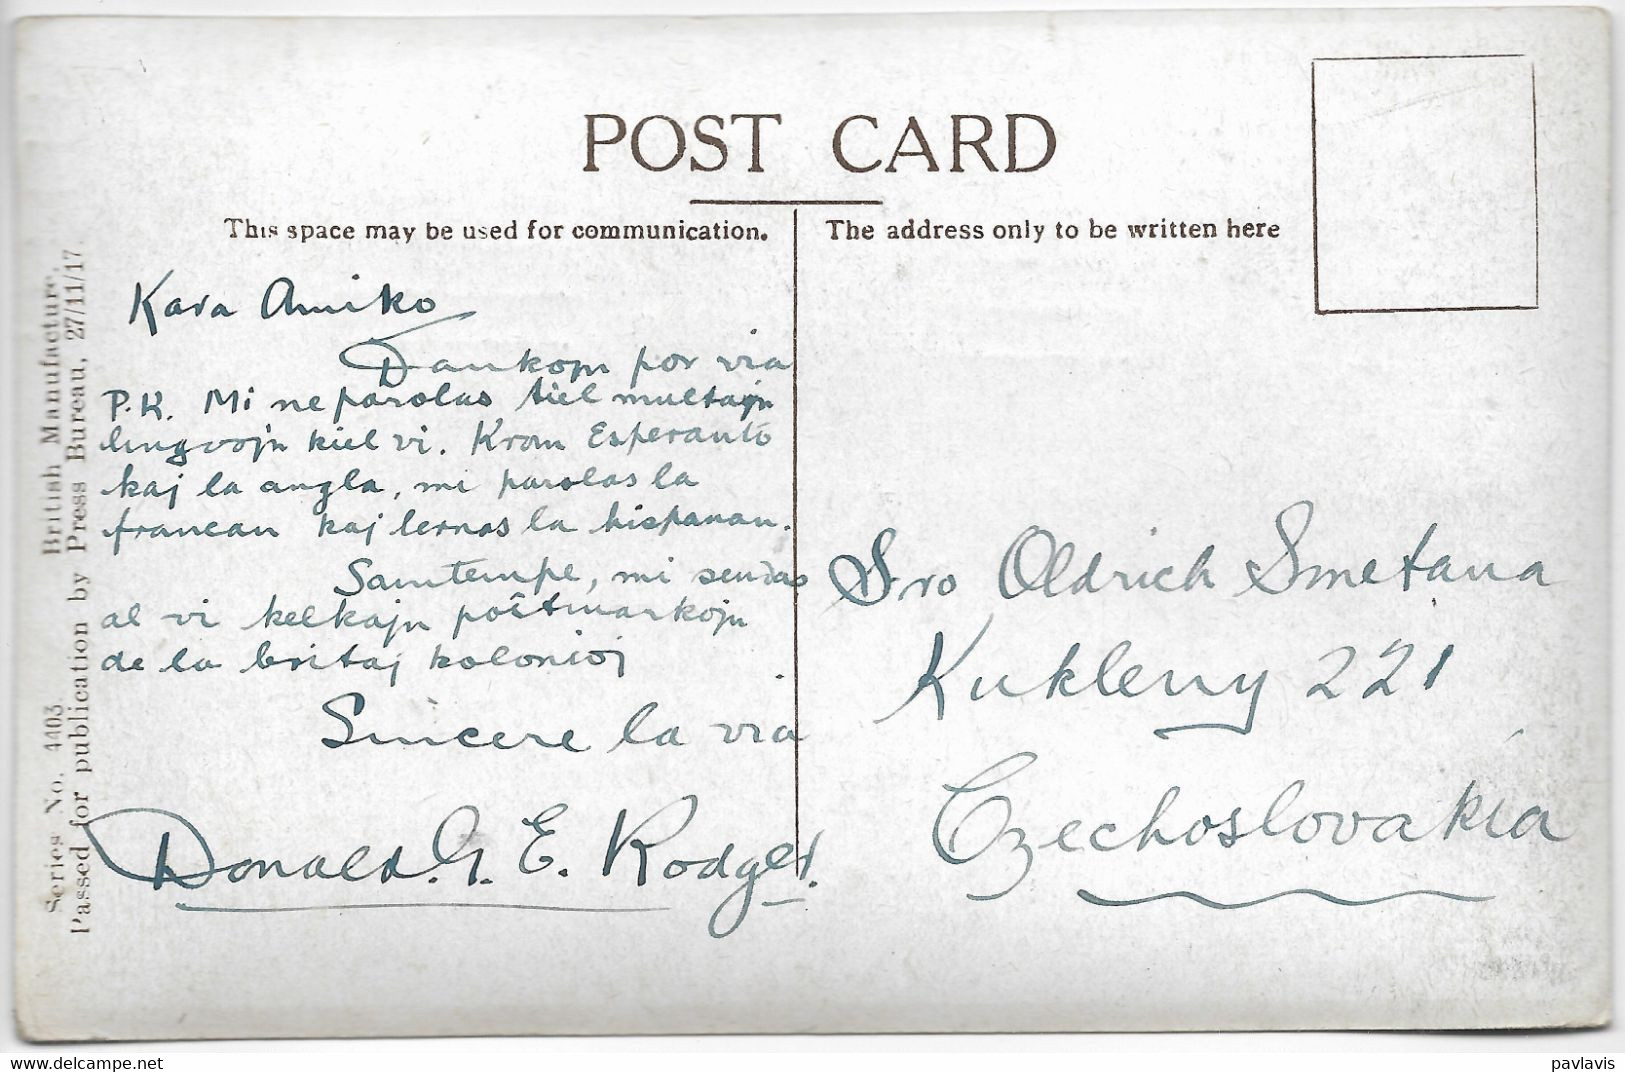 POST CARD
This space may be used for communication.
The address only to be written here
Kara Amiko
Dankojn por via
P.K. Mi ne parolas tiel multajn
lingvojn kiel vi. Krom Esperanto
kaj la angla, mi parolas la
francan kaj lernas la hispanan.
Samtempe, mi sendas
al vi kelkajn poŝtmarkojn
de la britaj kolonioj
Sincere la via
Donald. G. E. Rodger.
Sro Oldrich Smetana
Kukleny 221
Czechoslovakia
Series No. 4403. British Manufacture.
Passed for publication by Press Bureau, 27/11/17.
pavlavis